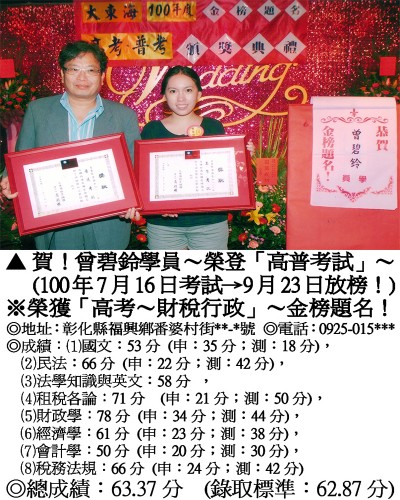 大東海100年度
金榜題名
高考.普考
頒獎典禮
Wedding
恭賀
曾碧鈴
學員
金榜題名!
▲賀!曾碧鈴學員～榮登「高普考試」～
(100年7月16日考試→9月23日放榜!)
※榮獲「高考～財稅行政」～金榜題名!
◎地址:彰化縣福興鄉番婆村街**-*號 ◎電話:0925-015***
◎成績:(1)國文:53分(申:35分;測:18分),
(2)民法:66分(申:22分;測:42分),
(3)法學知識與英文:58分 ,
(4)租稅各論:71分 (申:21分;測:50分),
(5)財政學:78分 (申:34分;測:44分),
(6)經濟學:61分 (申:23分;測:38分),
(7)會計學:50分 (申:20分;測:30分),
(8)稅務法規:66分 (申:24分;測:42分)
◎總成績:63.37分 (錄取標準:62.87分)